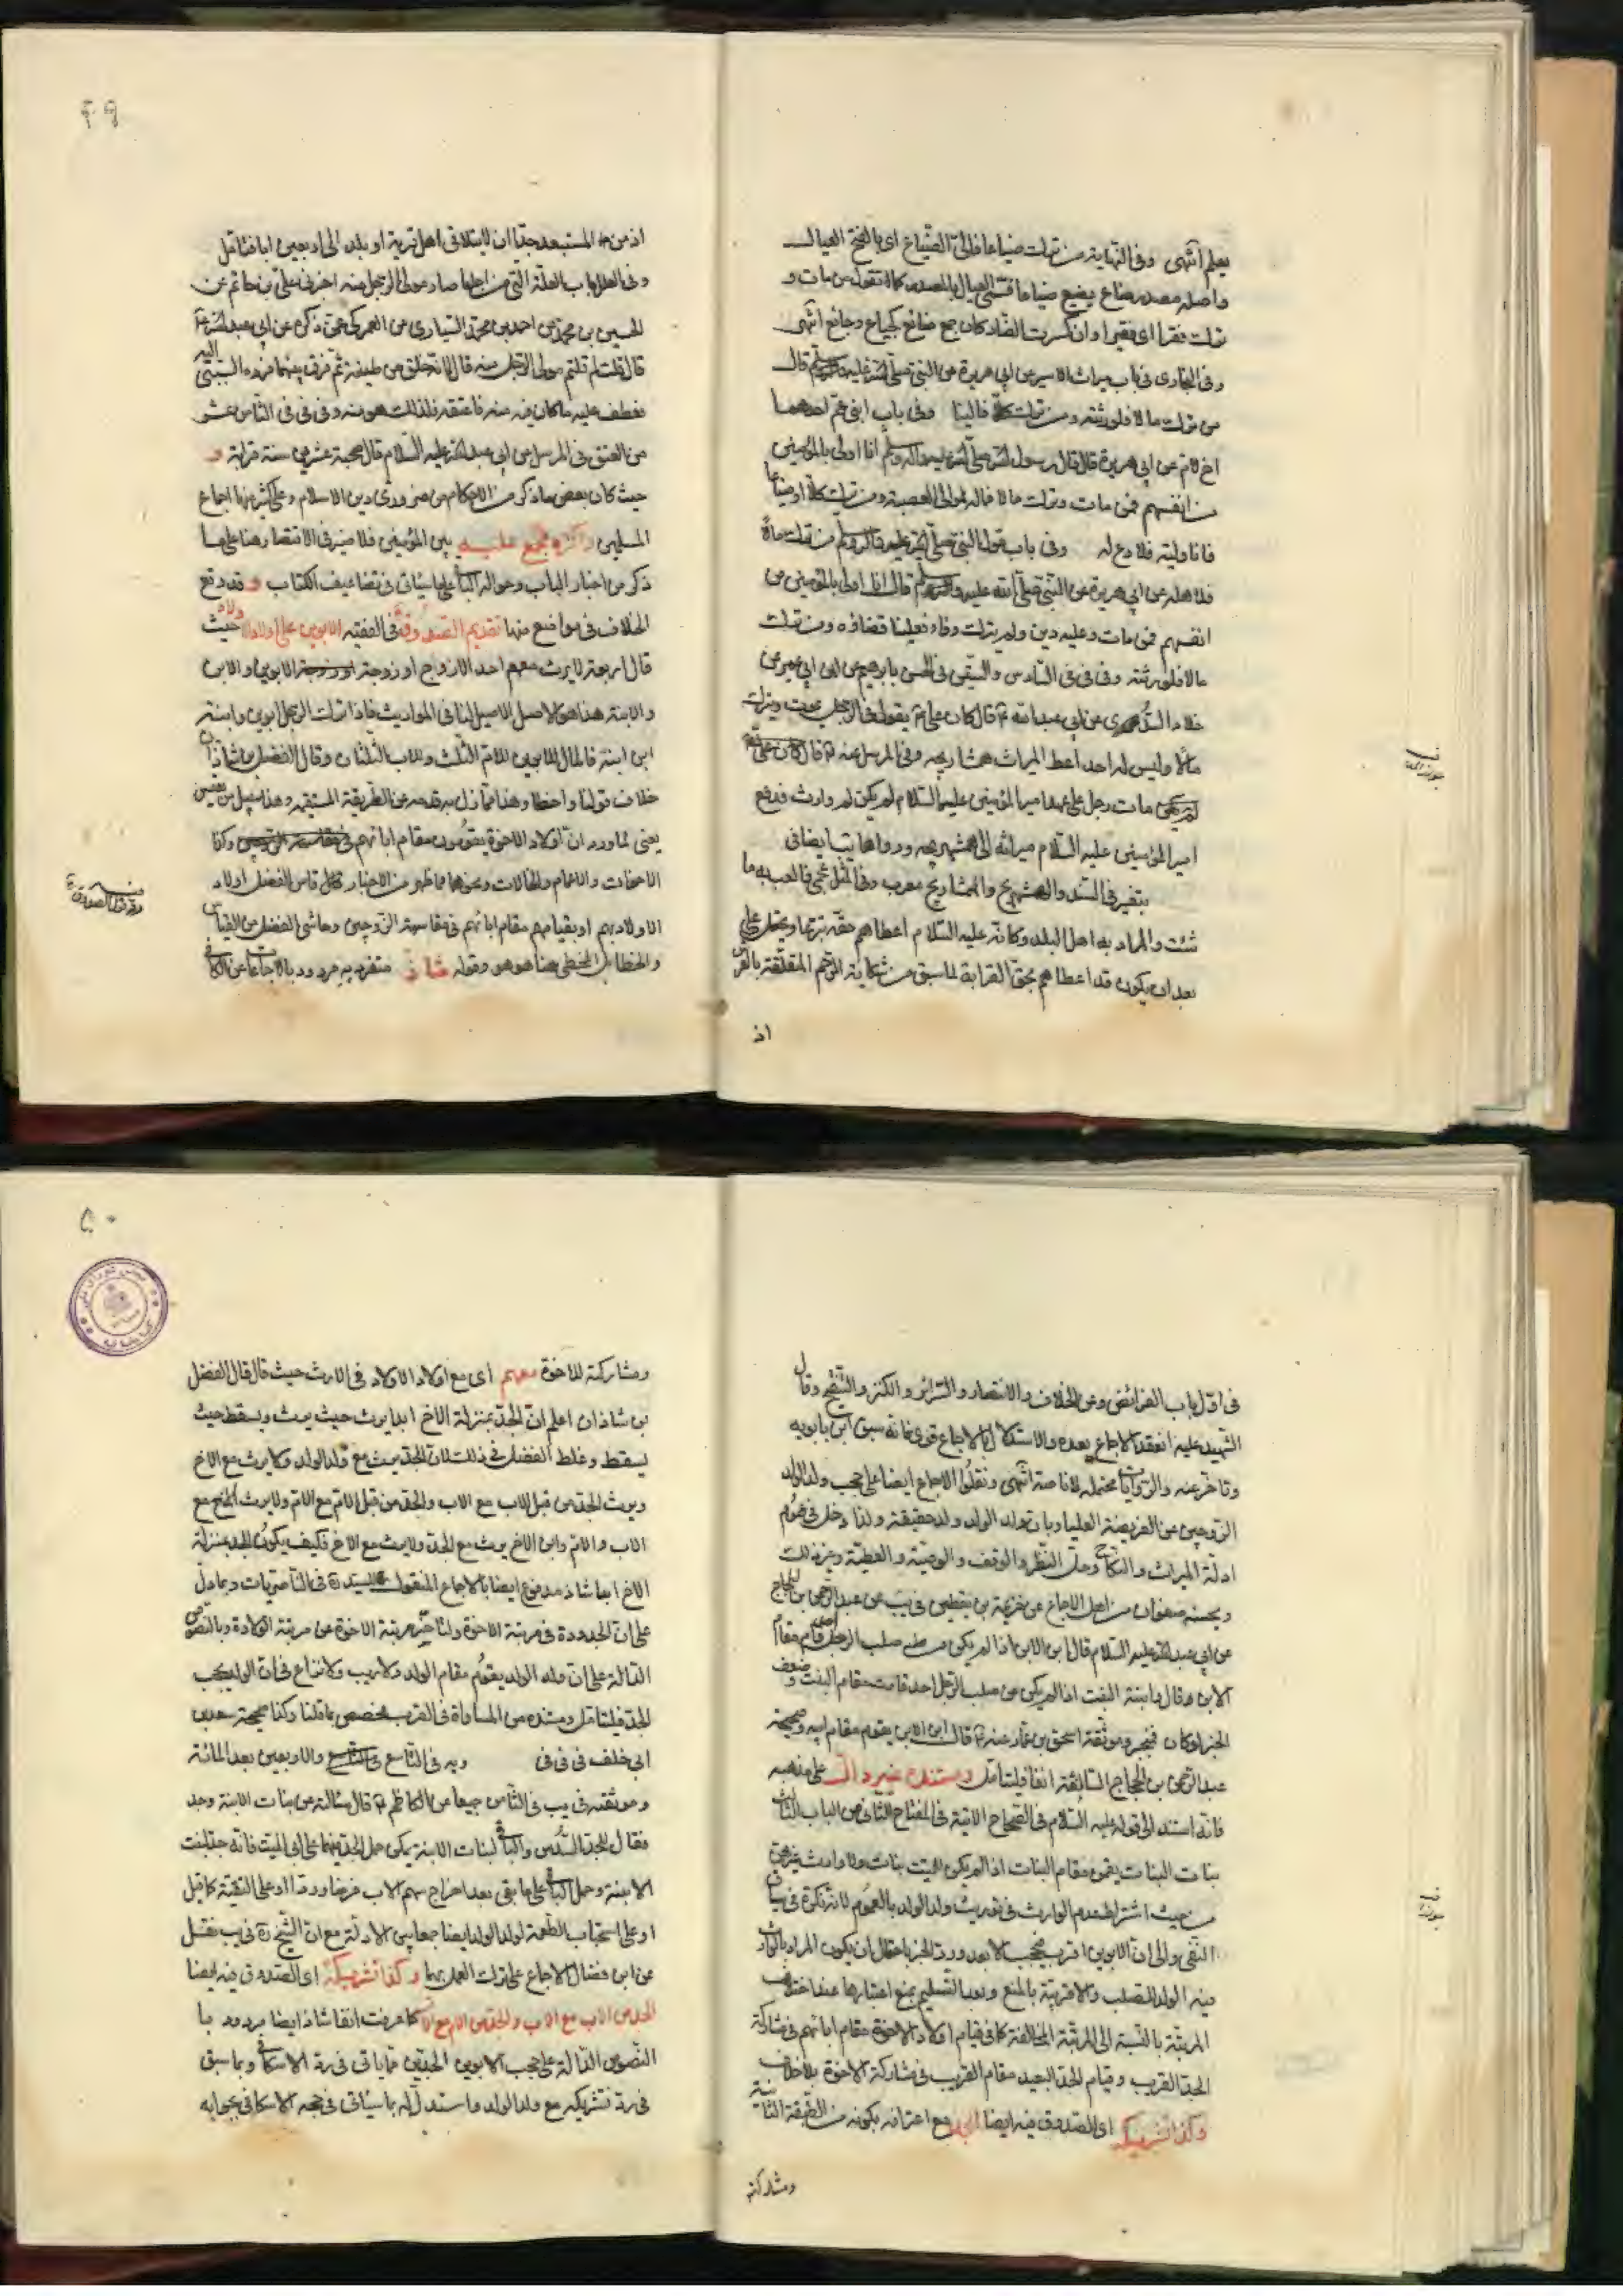 يعلم انتهى وفى النهاية من ترك ضياعا فالىّ الضَّياع اى بالفتح العيال
واصله مصدر ضاع يضيع ضياعا فسمّى العيال بالمصدر كما تقول من مات و
ترك فقرا اى فقيرا وان كسرت الضاد كان جمع ضائع كجياع وجائع انتهى
وفى البخارى فى باب ميراث الاسير عن ابى هريرة عن النبى صلى الله عليه وآله وسلم قال
من ترك مالا فلورثته ومن ترك كلّا فالينا وفى باب ابنى عمّ احدهما
اخ لامّ عن ابى هريرة قال قال رسول الله صلى الله عليه وآله وسلم انا اولى بالمؤمنين
من انفسهم فمن مات وترك مالا فماله لموالى العصبة ومن ترك كلّا او ضياعا
فانا وليّه فلا دع له وفى باب قول النبى صلى الله عليه وآله وسلم من ترك مالاً
فلاهله عن ابى هريرة عن النبى صلى الله عليه وآله وسلم قال انا اولى بالمؤمنين من
انفسهم فمن مات وعليه دين ولم يترك وفاء فعلينا قضاؤه ومن ترك
مالا فلورثته وفى فى فى السادس والستين فى الحسن بابرهيم عن ابن ابى عمير عن
خلاد السُّدى عن ابى عبد الله ع قال كان على ع يقول فى الرجل يموت ويترك
مالا وليس له احد اعط الميراث همشاريجه وفى المرسل عنه ع قال
مات رجل على عهد امير المؤمنين عليه السلام لم يكن له وارث فدفع
امير المؤمنين عليه السلام ميراثه الى همشهريجه ورواها يب ايضا فى
بتغير فى السند والهمشهريج والهمشاريج معرب وفى المثل عجمى فالعب به ما
شئت والمراد به اهل البلد وكانّه عليه السلام اعطاهم حقّه تبرّعا ويحتمل على
بعد ان يكون قد اعطاهم بحق القرابة لما سبق من شكاية الرّحم المتعلّقة بالعرش
اذ
٤٩
اذ من المستبعد جدّا ان لا يتلاقى اهل قرية او بلد الى اربعين ابا فتامّل
وفى العلل باب العلة التى من اجلها صار مولى الرجل منه اخبرنى على بن حاتم عن
الحسين بن محمد عن احمد بن محمد السيارى عن العمركى عمّن ذكره عن ابى عبد الله ع
قال قلت لم قلتم مولى الرجل منه قال لانه خلق من طينته ثم فرق بينهما فردّه السبى اليه
فعطف عليه ما كان فيه منه فاعتقه فلذلك هو منه وفى فى فى الثامن عشر
من العتق فى المرسل عن ابى عبد الله عليه السلام قال صحبة عشرين سنة قرابة و
حيث كان بعض ما ذكر من الاحكام من ضرورى دين الاسلام وعلى كثير منها اجماع
المسلمين واكثره مجمع عليه بين المؤمنين فلا ضير فى الاقتصار هنا على ما
ذكر من اخبار الباب وحوالة الباقى على ما سيأتى فى تضاعيف الكتاب و قد وقع
الخلاف فى مواضع منها تقديم الصدوق فى الفقيه الابوين على اولاد الاولاد حيث
قال اربعة لا يرث معهم احد الا زوج او زوجة الابوين والابن
والابنة هذا هو الاصل الاصيل لنا فى المواريث فاذا ترك الرجل ابوين وابنة
ابن ابنة فالمال للابوين للام الثلث وللاب الثلثان وقال الفضل بن شاذان
خلاف قولنا واخطا وهذا ممّا زل به قدمه عن الطريقة المستقيمة وهذا سبيل من يقيس
يعنى لما ورد ان اولاد الاخوة يقومون مقام ابائهم وكذا
الاخوات والاعمام والخالات ونحوهما مما ظهر من الاخبار قاس الفضل اولاد
الاولاد بهم او بقيامهم مقام ابائهم فى مقاسمة الزوجين وحاشى الفضل من القياس
والخطا بل المخطى هنا هو هو وقوله شاذ متفرد به مردود بالاجماعات عن الكافى
فى اوّل باب الفرائض ومن الخلاف والانتصار والسرائر والكنز والتنقيح وقال
الشهيد عليه انعقد الاجماع بعده والاستدلال بالاجماع قوى فانه سبق ابن بابويه
وتاخر عنه والروايات محتملة لانا صة انتهى ونقلوا الاجماع ايضا على حجب ولد الولد
الزوجين عن الفريضة العليا وبان ولد الولد ولد حقيقة ولذا دخل فى عموم
ادلّة الميراث والنكاح وحلّ النظر والوقف والوصية والعطية وغير ذلك
وبحسنة صفوان من اهل الاجماع عن خزيمة بن يقطين فى يب عن عبد الرحمن بن الحجاج
عن ابى عبد الله عليه السلام قال ابن الابن اذا لم يكن من صلب الرجل احد قام مقام
الابن وقال وابنة البنت اذا لم يكن من صلب الرجل احد قامت مقام البنت وضعف
الخبر لو كان فينجبر وموثقة اسحق بن عمار عنه ع قال ابن الابن يقوم مقام ابيه وصحيحة
عبد الرحمن بن الحجاج السالفة انفا فليتامل ومستنده غير دالّ على مذهبه
فانّه استند الى قوله عليه السلام فى الصحاح الاتية فى المفتاح الثانى من الباب الثالث
بنات البنات يقمن مقام البنات اذا لم يكن للميت بنات ولا وارث غيرهن
من حيث اشتراط عدم الوارث فى توريث ولد الولد بالعموم لانه نكرة فى سياق
النفى والى ان الابوين اقرب فيحجب الابعد وردّ الخبر باحتمال ان يكون المراد بالوارث
فيه الولد للصلب والاقربية بالمنع وبعد التسليم يمنع اعتبارها عند اختلاف
المرتبة بالنسبة الى المرتبة المخالفة كما فى قيام اولاد الاخوة مقام ابائهم فى مشاركة
الجد القريب وقيام الجد البعيد مقام القريب فى مشاركة الاخوة بلا خلاف
وكذا تشريكه اى الصدوق فيه ايضا الجد مع اعترافه بكونه من الطبقة الثانية
ومشاركته
٥٠
ومشاركته للاخوة معهم اى مع اولاد الاولاد فى الارث حيث قال قال الفضل
بن شاذان اعلم انّ الجدّ بمنزلة الاخ ابدا يرث حيث يرث ويسقط حيث
يسقط وغلط الفضل فى ذلك لان الجدّ يرث مع ولد الولد ولا يرث مع الاخ
ويرث الجد من قبل الاب مع الاب والجد من قبل الام مع الام ولا يرث الاخ مع
الاب والام وابن الاخ يرث مع الجدّ ولا يرث مع الاخ فكيف يكون الجد بمنزلة
الاخ ابدا شاذ مدفوع ايضا بالاجماع المنقول السيد ره فى الناصريات وبما دلّ
على ان الجدودة فى مرتبة الاخوة ولتاخّر مرتبة الاخوة عن مرتبة الولادة وبالنصوص
الدالة على ان ولد الولد يقوم مقام الولد ولا ريب ولا نزاع فى ان الولد يحجب
الجدّ فليتامل ومستنده من المساواة فى القرب مخصص بما قلنا وكذا صحيحة سعد بن
ابى خلف فى فى فى ويه فى التاسع والاربعين بعد المائة
وموثقته فى يب فى الثامن جميعا عن الكاظم ع قال سالته عن بنات الابنة وجد
فقال للجد السدس والباقى لبنات الابنة يمكن حمل الجد فيهما على ابى الميت فانّه جد لبنت
الابنة وحمل الباقى على ما بقى بعد اخراج سهم الاب فرضا وردّا او على التقية كما قيل
او على استحباب الطعمة لولد الولد ايضا جمعا بين الادلّة مع ان الشيخ ره فى يب نقل
عن ابن فضال الاجماع على ترك العمل بهما وكذا تشريكه اى الصدوق فيه ايضا
الجد من الاب مع الاب والجد من الام مع الام كما عرفت انفا شاذ ايضا مردود با
النصوص الدالة على حجب الابوين الجدّين مما ياتى فى ردّ الاسكافى وبما سبق
فى ردّ تشريكه مع ولد الولد وما استدل له بما سيأتى فى حجة الاسكافى بجوابه